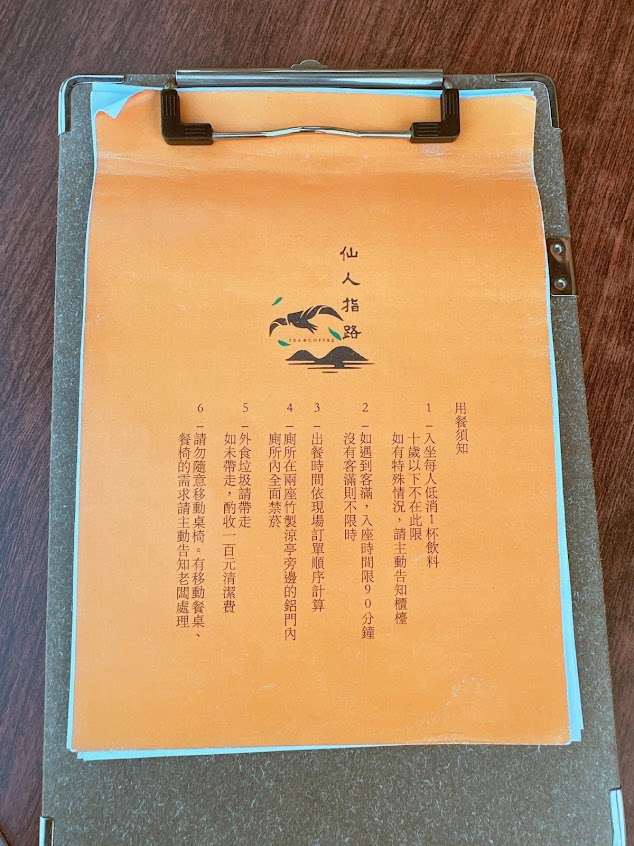 仙人指路
TEA&COFFEE
用餐須知
1－入坐每人低消1杯飲料
十歲以下不在此限
如有特殊情況，請主動告知櫃檯
2－如遇到客滿，入座時間限90分鐘
沒有客滿則不限時
3－出餐時間依現場訂單順序計算
4－廁所在兩座竹製涼亭旁邊的鋁門內
廁所內全面禁菸
5－外食垃圾請帶走
如未帶走，酌收一百元清潔費
6－請勿隨意移動桌椅。有移動餐桌、
餐椅的需求請主動告知老闆處理